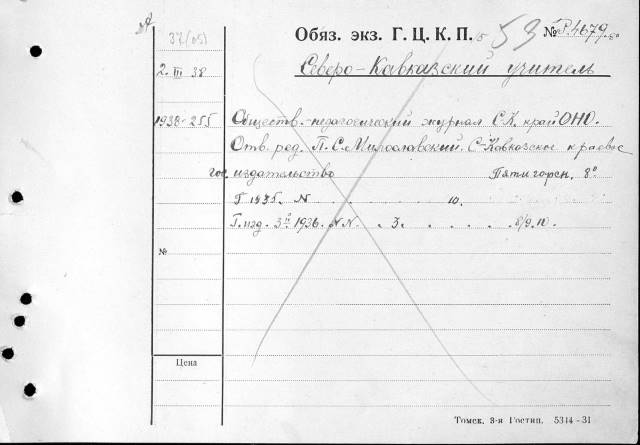 37(05)
Обяз. экз. Г. Ц. К. П. 53 № P.4679
2 III 38
Северо-Кавказский учитель
1938-255
Обществ.-педагогический журнал С.К. край ОНО.
Отв. ред. П. С. Милославский. С-Кавказское краевое
гос. издательство Пятигорск. 8°
Г 1935. N . . . . . 10.
Г. изд. 3й 1936. NN. . 3. . . . . . 8/9. 10.
№
Цена
Томск. 3-я Гостип. 5314 - 31